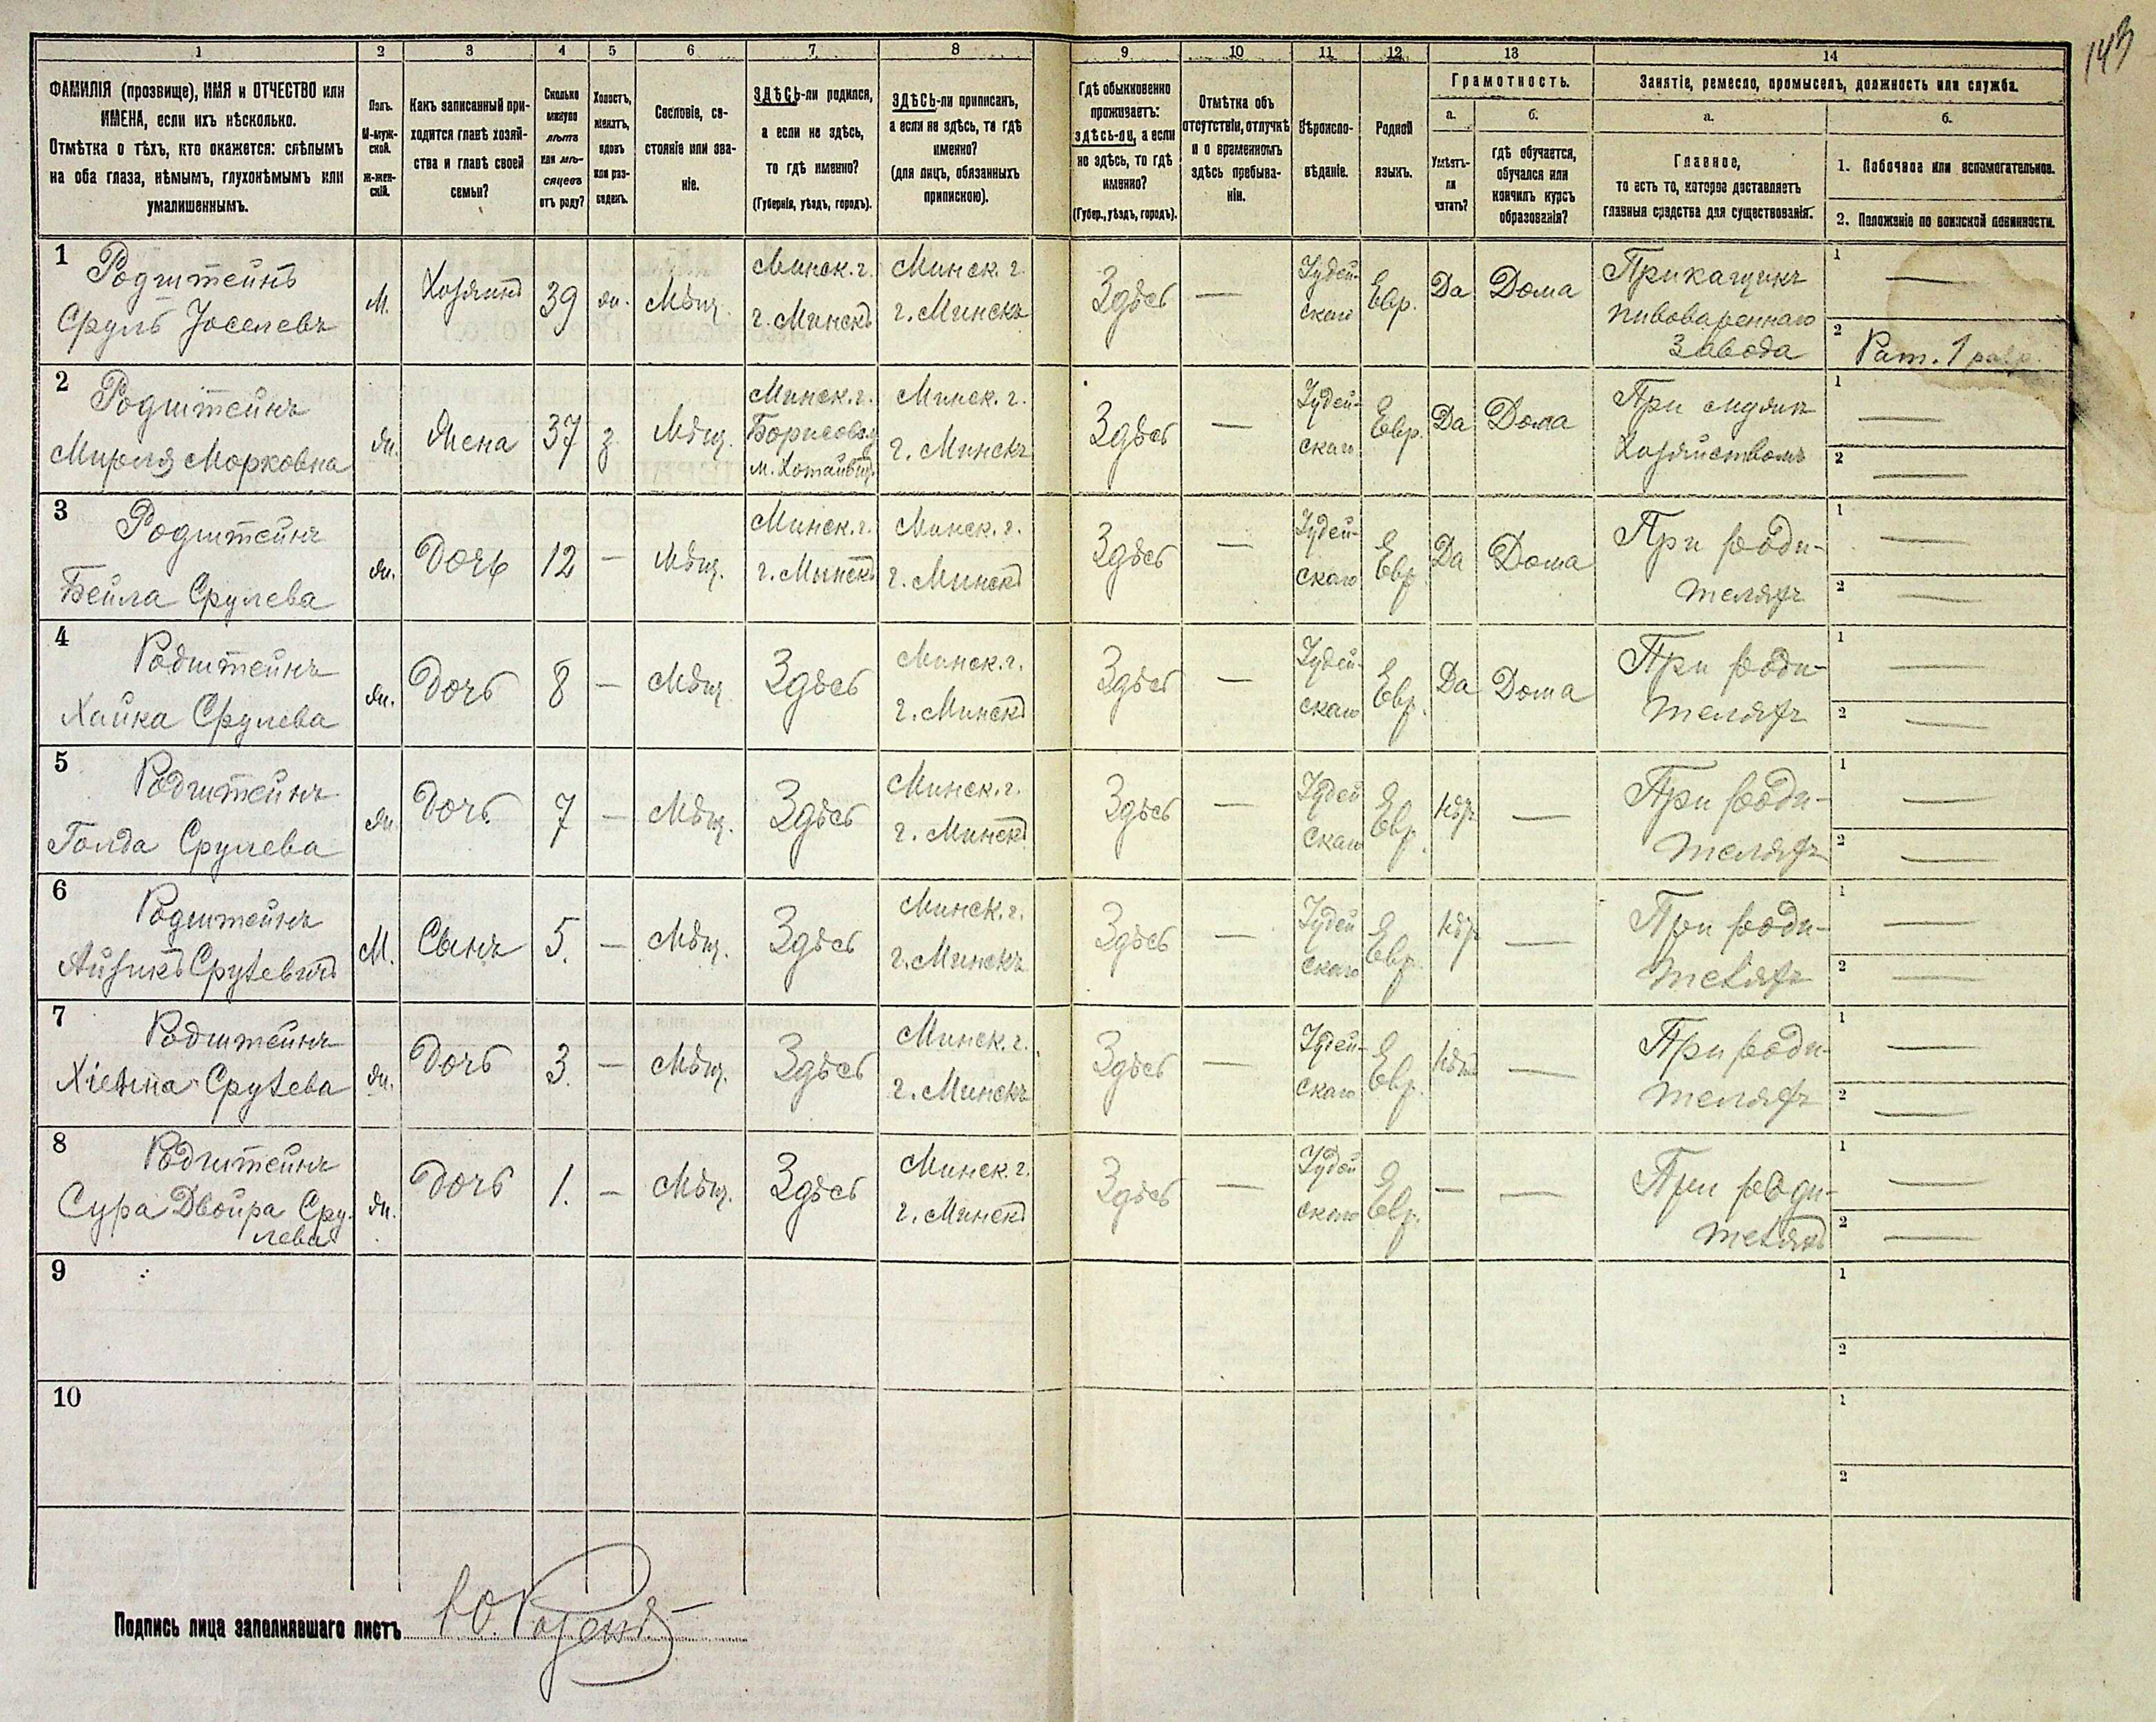 143
1 2 3 4 5 6 7 8 9 10 11 12 13 14
ФАМИЛІЯ (прозвище), ИМЯ и ОТЧЕСТВО или
ИМЕНА, если ихъ нѣсколько.
Отмѣтка о тѣхъ, кто окажется: слѣпымъ
на оба глаза, нѣмымъ, глухонѣмымъ или
умалишеннымъ.
Полъ.
М-муж-
ской.
Ж-жен-
скій.
Какъ записанный при-
ходится главѣ хозяй-
ства и главѣ своей
семьи?
Сколько
минуло
лѣтъ
или мѣ-
сяцевъ
отъ роду?
Холостъ,
женатъ,
вдовъ
или раз-
веденъ.
Сословіе, со-
стояніе или зва-
ніе.
ЗДѢСЬ-ли родился,
а если не здѣсь,
то гдѣ именно?
(Губернія, уѣздъ, городъ).
ЗДѢСЬ-ли приписанъ,
а если не здѣсь, то гдѣ
именно?
(для лицъ, обязанныхъ
припискою).
Гдѣ обыкновенно
проживаетъ:
здѣсь-ли, а если
не здѣсь, то гдѣ
именно?
(Губер., уѣздъ, городъ).
Отмѣтка объ
отсутствіи, отлучкѣ
и о временномъ
здѣсь пребыва-
ніи.
Вѣроиспо-
вѣданіе.
Родной
языкъ.
Грамотность.
а.
Умѣетъ-
ли
читать?
б.
гдѣ обучается,
обучался или
кончилъ курсъ
образованія?
Занятіе, ремесло, промыселъ, должность или служба.
а.
Главное,
то есть то, которое доставляетъ
главныя средства для существованія.
б.
1. Побочное или вспомогательное.
2. Положеніе по воинской повинности.
1 Родштейнъ
Сруль Іоселевъ
М.
Хозяинъ
39
жн.
Мѣщ.
Минск. г.
г. Минскъ
Минск. г.
г. Минскъ
Здѣсь
—
Іудей-
скаго
Евр.
Да
Дома
Прикащикъ
пивовареннаго
завода
1 —
2 Рат. 1 разр.
2 Родштейнъ
Мирля Морковна
Жн.
Жена
37
з
Мѣщ.
Минск. г.
Минск. г.
г. Минскъ
Здѣсь
—
Іудей-
скаго
Евр.
Да
Дома
При
Хозяйствомъ
1 —
2 —
3 Родштейнъ
Бейла Срулева
Жн.
Дочь
12
—
Мѣщ.
Минск. г.
г. Минскъ
Минск. г.
г. Минскъ
Здѣсь
—
Іудей-
скаго
Евр.
Да
Дома
При роди-
теляхъ
1 —
2 —
4 Родштейнъ
Хайка Срулева
Жн.
Дочь
8
—
Мѣщ.
Здѣсь
Минск. г.
г. Минскъ
Здѣсь
—
Іудей-
скаго
Евр.
Да
Дома
При роди-
теляхъ
1 —
2 —
5 Родштейнъ
Голда Срулева
Жн
Дочь
7
—
Мѣщ.
Здѣсь
Минск. г.
г. Минскъ
Здѣсь
—
Іудей
скаго
Евр.
Нѣтъ
—
При роди-
теляхъ
1 —
2 —
6 Родштейнъ
Айзикъ Срулевичъ
М.
Сынъ
5.
—
Мѣщ.
Здѣсь
Минск. г.
г. Минскъ
Здѣсь
—
Іудей
скаго
Евр.
Нѣтъ
—
При роди-
теляхъ
1 —
2 —
7 Родштейнъ
Срулева
Жн.
Дочь
3.
—
Мѣщ.
Здѣсь
Минск. г.
г. Минскъ
Здѣсь
—
Іудей-
скаго
Евр.
Нѣтъ
—
При роди-
теляхъ
1 —
2 —
8 Родштейнъ
Сура Двойра Сру-
лева
Жн.
Дочь
1.
—
Мѣщ.
Здѣсь
Минск. г.
г. Минскъ
Здѣсь
—
Іудей
скаго
Евр.
—
—
При роди-
теляхъ
1 —
2 —
9
1
2
10
1
2
Подпись лица заполнявшаго листъ